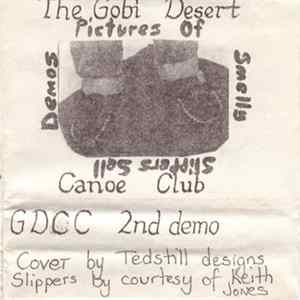 The Gobi Desert
Pictures Of
Smelly
Slippers Sell
Demos
Canoe Club
GDCC 2nd demo
Cover by Tedstill designs
Slippers by courtesy of Keith
Jones